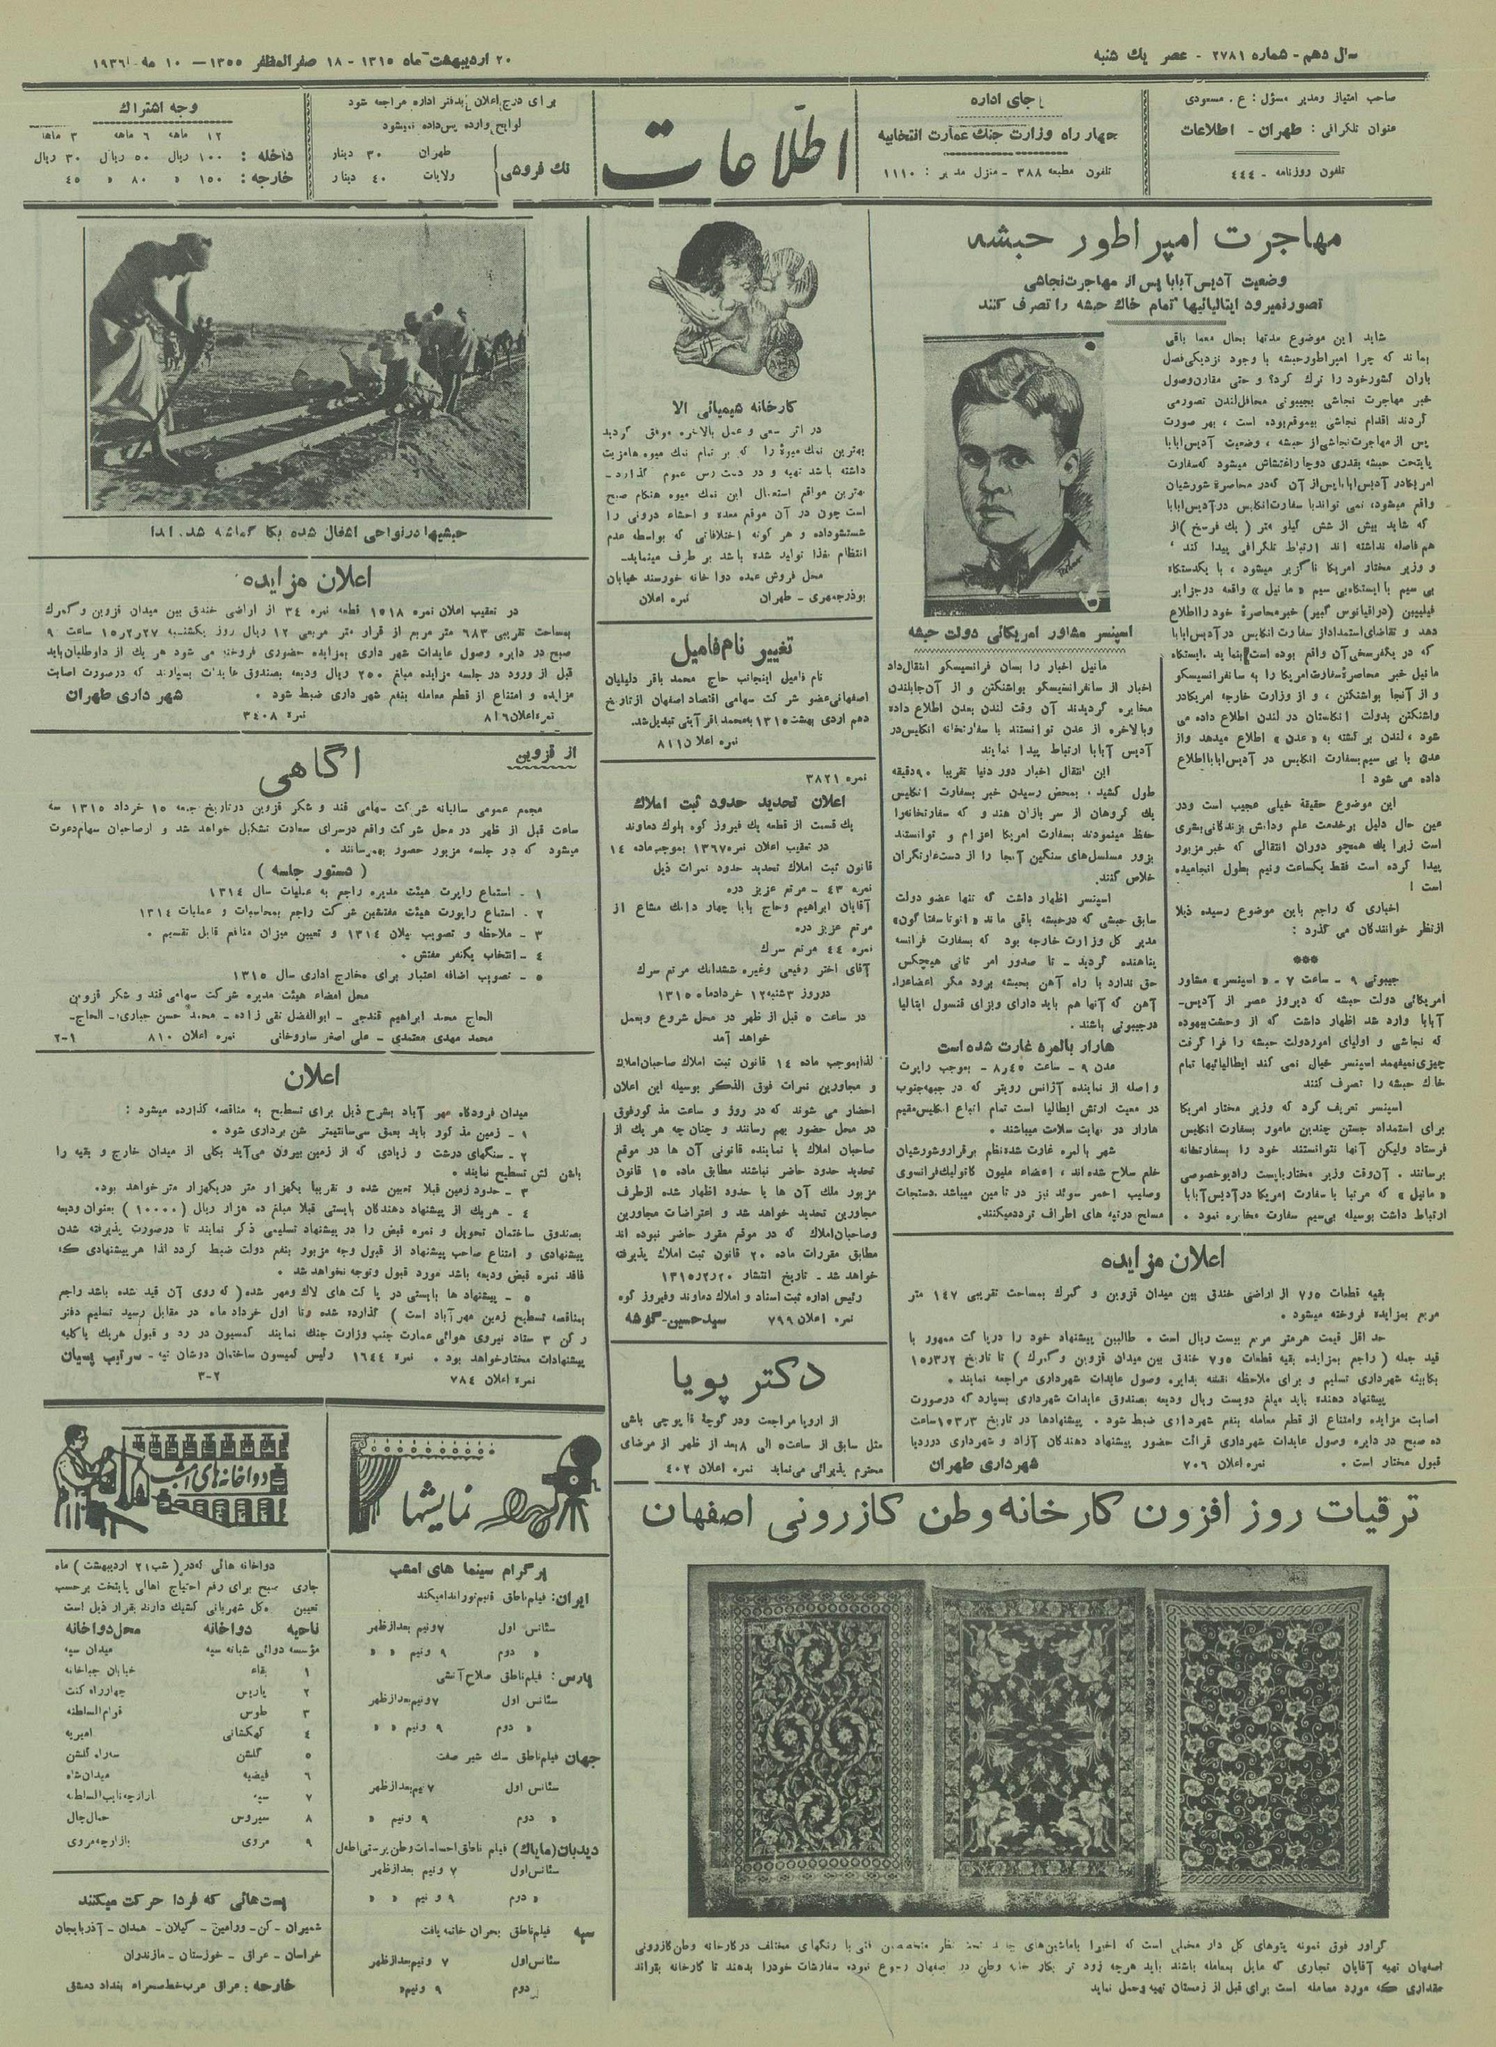 سال دهم - شماره ۲۷۸۱ - عصر یك شنبه
۲۰ اردیبهشت ماه ۱۳۱۵ - ۱۸ صفرالمظفر ۱۳۵۵ - ۱۰ مه ۱۹۳۶
صاحب امتیاز ومدیر مسؤل : ع . مسعودی
عنوان تلگرافی : طهران - اطلاعات
تلفون روزنامه - ۴۴۴
جای اداره
چهار راه وزارت جنك عمارت انتخابیه
تلفون مطبعه ۳۸۸ - منزل مدیر : ۱۱۱۰
اطلاعات
برای درج اعلان بدفتر اداره مراجعه شود
لوایح وارده پس داده نمیشود
تك فروشی
طهران ۳۰ دینار
ولایات ۴۰ دینار
وجه اشتراك
۱۲ ماهه ۶ ماهه ۳ ماهه
داخله : ۱۰۰ ریال ۵۰ ریال ۳۰ ریال
خارجه : ۱۵۰ » ۸۰ » ۴۵
مهاجرت امپراطور حبشه
وضعیت آدیس آبابا پس از مهاجرت نجاشی
تصور نمیرود ایتالیائیها تمام خاك حبشه را تصرف کنند
شاید این موضوع مدتها بحال معما باقی
بماند که چرا امپراطور حبشه با وجود نزدیکی فصل
باران کشور خود را ترك کرد؟ و حتی مقارن وصول
خبر مهاجرت نجاشی بجیبوتی محافل لندن تصور می
کردند اقدام نجاشی بیموقع بوده است ، بهر صورت
پس از مهاجرت نجاشی از حبشه ، وضعیت آدیس ابابا
پایتخت حبشه بقدری دوچار اغتشاش میشود که سفارت
امریکا در آدیس ابابا پس از آن که در محاصرهٔ شورشیان
واقع میشود، نمی تواند با سفارت انگلیس در آدیس ابابا
که شاید بیش از شش کیلو متر ( یك فرسخ ) از
هم فاصله نداشته اند ارتباط تلگرافی پیدا کند ،
و وزیر مختار امریکا ناگزیر میشود ، با یکدستگاه
بی سیم با ایستگاه بی سیم « مانیل » واقعه در جزایر
فیلیپین (در اقیانوس کبیر) خبر محاصرهٔ خود را اطلاع
دهد و تقاضای استمداد از سفارت انگلیس در آدیس ابابا
که در یکفرسخی آن واقع بوده است بنماید . ایستگاه
مانیل خبر محاصرهٔ سفارت امریکا را به سانفرانسیسکو
و از آنجا بواشنگتن ، و از وزارت خارجه امریکا در
واشنگتن بدولت انگلستان در لندن اطلاع داده می
شود ، لندن بر گشته به « عدن » اطلاع میدهد و از
عدن با بی سیم بسفارت انگلیس در آدیس ابابا اطلاع
داده می شود !
این موضوع حقیقة خیلی عجیب است و در
عین حال دلیل بر خدمت علم و دانش بزندگانی بشری
است زیرا یك همچو دوران انتقالی که خبر مزبور
پیدا کرده است فقط یکساعت ونیم بطول انجامیده
است !
اخباری که راجع باین موضوع رسیده ذیلا
از نظر خوانندگان می گذرد :
***
جیبوتی ۹ - ساعت ۷ - « اسپنسر » مشاور
امریکائی دولت حبشه که دیروز عصر از آدیس -
آبابا وارد شد اظهار داشت که از وحشت بیهوده
که نجاشی و اولیای امور دولت حبشه را فرا گرفت
چیزی نمیفهمد اسپنسر خیال نمی کند ایطالیائیها تمام
خاك حبشه را تصرف کنند
اسپنسر تعریف کرد که وزیر مختار امریکا
برای استمداد جستن چندین مامور بسفارت انگلیس
فرستاد ولیکن آنها نتوانستند خود را بسفارتخانه
برسانند . آن وقت وزیر مختار بایست رادیو خصوصی
« مانیل » که مرتبا با سفارت امریکا در آدیس آبابا
ارتباط داشت بوسیله بی سیم سفارت مخابره نمود .
اسپنسر مشاور امریکائی دولت حبشه
مانیل اخبار را بسان فرانسیسکو انتقال داد
اخبار از سانفرانسیسکو بواشنگتن و از آن جا بلندن
مخابره گردیدند آن وقت لندن بعدن اطلاع داده
وبالاخره از عدن توانستند با سفارتخانه انگلیس در
آدیس آبابا ارتباط پیدا نمایند
این انتقال اخبار دور دنیا تقریبا ۹۰ دقیقه
طول کشید . بمحض رسیدن خبر بسفارت انگلیس
یك گروهان از سر بازان هندو که سفارتخانه را
حفظ مینمودند بسفارت امریکا اعزام و توانستند
بزور مسلسل های سنگین آنجا را از دست غارتگران
خلاص کنند.
اسپنسر اظهار داشت که تنها عضو دولت
سابق حبشی که در حبشه باقی ماند
مدیر کل وزارت خارجه بود که بسفارت فرانسه
پناهنده گردید - تا صدور امر ثانی هیچکس
حق ندارد با راه آهن بحبشه برود مگر اعضاء راه
آهن که آنها هم باید دارای ویزای قنسول ایتالیا
در جیبوتی باشند .
هارار بالمره غارت شده است
عدن ۹ - ساعت ۸٫۴۵ - بموجب راپرت
واصله از نماینده آژانس رویتر که در جبهه جنوب
در معیت ارتش ایطالیا است تمام اتباع انگلیس مقیم
هارار در نهایت سلامت میباشند .
شهر بالمره غارت شده نظم برقرار و شورشیان
خلع سلاح شده اند ، اعضاء ملیون کاتولیك فرانسوی
وصلیب احمر سوئد نیز در تامین میباشد . دستجات
مسلح در تپه های اطراف تردد میکنند.
اعلان مزایده
بقیه قطعات ۷و۵ از اراضی خندق بین میدان قزوین و گمرك بمساحت تقریبی ۱۴۷ متر
مربع بمزایده فروخته میشود .
حد اقل قیمت هر متر مربع بیست ریال است . طالبین پیشنهاد خود را در پاکت ممهور با
قید جمله ( راجع بمزایده بقیه قطعات ۷و۵ خندق بین میدان قزوین و گمرك ) تا تاریخ ۱۵/۳/۲
بکابینه شهرداری تسلیم و برای ملاحظه نقشه بدایره وصول عایدات شهرداری مراجعه نمایند .
پیشنهاد دهنده باید مبلغ دویست ریال ودیعه بصندوق عایدات شهرداری بسپارد که در صورت
اصابت مزایده وامتناع از قطع معامله بنفع شهرداری ضبط شود . پیشنهادها در تاریخ ۱۵/۳/۳ ساعت
ده صبح در دایره وصول عایدات شهرداری قرائت حضور پیشنهاد دهندگان آزاد و شهرداری در رد یا
قبول مختار است . نمره اعلان ۷۰۶ شهرداری طهران
کارخانه شیمیائی الا
در اثر سعی و عمل بالاخره موفق گردید
بهترین نمك میوهٔ را که بر تمام نمك میوه ها مزیت
داشته باشد تهیه و در دست رس عموم گذارد -
بهترین مواقع استعمال این نمك میوه هنگام صبح
است چون در آن موقع معده و احشاء درونی را
شستشو داده و هر گونه اختلافاتی که بواسطه عدم
انتظام غذا تولید شده باشد بر طرف مینماید -
محل فروش عمده دوا خانه خورسند خیابان
بوذرجمهری - طهران نمره اعلان
تغییر نام فامیل
نام فامیل اینجانب حاج محمد باقر دلیلیان
اصفهانی عضو شرکت سهامی اقتصاد اصفهان از تاریخ
دهم اردی بهشت ۱۳۱۵ به محمد باقر آیتی تبدیل شد.
نمره اعلان ۸۱۱۵
نمره ۳۸۲۱
اعلان تحدید حدود ثبت املاك
یك قسمت از قطعه یك فیروز کوه بلوك دماوند
در تعقیب اعلان نمره ۱۳۶۷ بموجب ماده ۱۴
قانون ثبت املاك تحدید حدود نمرات ذیل
نمره ۴۳ - مرتع عزیز دره
آقایان ابراهیم وحاج بابا چهار دانك مشاع از
مرتع عزیز دره
نمره ۴۴ مرتع سرك
آقای اختر رفیعی وغیره ششدانك مرتع سرك
در روز ۳ شنبه ۱۲ خرداد ماه ۱۳۱۵
در ساعت ۵ قبل از ظهر در محل شروع وبعمل
خواهد آمد
لذا بموجب ماده ۱۴ قانون ثبت املاك صاحبان املاك
و مجاورین نمرات فوق الذکر بوسیله این اعلان
احضار می شوند که در روز و ساعت مذکور فوق
در محل حضور بهم رسانند و چنان چه هر یك از
صاحبان املاك یا نماینده قانونی آن ها در موقع
تحدید حدود حاضر نباشند مطابق ماده ۱۵ قانون
مزبور ملك آن ها با حدود اظهار شده از طرف
مجاورین تحدید خواهد شد و اعتراضات مجاورین
وصاحبان املاك که در موقع مقرر حاضر نبوده اند
مطابق مقررات ماده ۲۰ قانون ثبت املاك پذیرفته
خواهد شد - تاریخ انتشار ۱۳۱۵/۲/۲۰
رئیس اداره ثبت اسناد و املاك دماوند وفیروز کوه
نمره اعلان ۷۹۹ سید حسین - گوشه
دکتر پویا
از اروپا مراجعت ودر کوچهٔ قاپوچی باشی
مثل سابق از ساعت ۵ الی ۸ بعد از ظهر از مرضای
محترم پذیرائی می نماید نمره اعلان ۴۰۲
حبشیها در نواحی اشغال شده بکار گماشته شده اند
اعلان مزایده
در تعقیب اعلان نمره ۱۵۱۸ قطعه نمره ۳۴ از اراضی خندق بین میدان قزوین و گمرك
بمساحت تقریبی ۶۸۳ متر مربع از قرار متر مربعی ۱۲ ریال روز یکشنبه ۱۵/۲/۲۷ ساعت ۹
صبح در دایره وصول عایدات شهر داری بمزایده حضوری فروخته می شود هر یك از داوطلبان باید
قبل از ورود در جلسه مزایده مبلغ ۲۵۰ ریال ودیعه بصندوق عایدات بسپارند که در صورت اصابت
مزایده و امتناع از قطع معامله بنفع شهر داری ضبط شود . شهر داری طهران
نمره اعلان ۸۱۶ نمره ۳۴۰۸
از قزوین
آگاهی
مجمع عمومی سالیانه شرکت سهامی قند و شکر قزوین در تاریخ جمعه ۱۵ خرداد ۱۳۱۵ سه
ساعت قبل از ظهر در محل شرکت واقع در سرای سعادت تشکیل خواهد شد و از صاحبان سهام دعوت
میشود که در جلسه مزبور حضور بهم رسانند .
( دستور جلسه )
۱ - استماع راپرت هیئت مدیره راجع به عملیات سال ۱۳۱۴
۲ . استماع راپورت هیئت مفتشین شرکت راجع بمحاسبات و عملیات ۱۳۱۴
۳ - ملاحظه و تصویب بیلان ۱۳۱۴ و تعیین میزان منافع قابل تقسیم .
۴ - انتخاب یکنفر مفتش .
۵ - تصویب اضافه اعتبار برای مخارج اداری سال ۱۳۱۵
محل امضاء هیئت مدیره شرکت سهامی قند و شکر قزوین
الحاج محمد ابراهیم قندچی - ابوالفضل نقی زاده - محمد حسن جباری - الحاج -
محمد مهدی معتمدی - علی اصغر ساروخانی نمره اعلان ۸۱۰ ۲-۱
اعلان
میدان فرودگاه مهر آباد بشرح ذیل برای تسطیح به مناقصه گذارده میشود :
۱ - زمین مذکور باید بعمق سی سانتیمتر شن برداری شود .
۲ - سنگهای درشت و زیادی که از زمین بیرون می آید بکلی از میدان خارج و بقیه را
باشن لش تسطیح نمایند .
۳ - حدود زمین قبلا تعیین شده و تقریبا یکهزار متر در یکهزار متر خواهد بود.
۴ - هر یك از پیشنهاد دهندگان بایستی قبلا مبلغ ده هزار ریال (۱۰۰۰۰ ) بعنوان ودیعه
بصندوق ساختمان تحویل و نمره قبض را در پیشنهاد تسلیمی ذکر نمایند تا در صورت پذیرفته شدن
پیشنهادی و امتناع صاحب پیشنهاد از قبول وجه مزبور بنفع دولت ضبط گردد لذا هر پیشنهادی که
فاقد نمره قبض ودیعه باشد مورد قبول وتوجه نخواهد شد .
۵ - پیشنهاد ها بایستی در پاکت های لاك ومهر شده ( که روی آن قید شده باشد راجع
بمناقصه تسطیح زمین مهر آباد است ) گذارده شده وتا اول خرداد ماه در مقابل رسید تسلیم دفتر
رکن ۳ ستاد نیروی هوائی عمارت جنب وزارت جنك نمایند کمسیون در رد و قبول هر یك یا کلیه
پیشنهادات مختار خواهد بود . نمره ۱۶۴۴ رئیس کمیسون ساختمان دوشان تپه - سرتیپ پسیان
نمره اعلان ۷۸۴ ۳-۲
نمایشها
پرگرام سینما های امشب
ایران: فیلم ناطق
سئانس اول ۷ ونیم بعد از ظهر
» دوم ۹ ونیم » »
پارس: فیلم ناطق صلاح آتشی
سئانس اول ۷ ونیم بعد از ظهر
» دوم ۹ ونیم » »
جهان فیلم ناطق سك شیر صفت
سئانس اول ۷ نیم بعد از ظهر
» دوم ۹ ونیم »
دیدبان (مایاك) فیلم ناطق احساسات وطن پرستی
سئانس اول ۷ ونیم بعد از ظهر
» دوم ۹ ونیم » »
سپه فیلم ناطق بحران خاتمه یافت
سئانس اول ۷ ونیم بعد از ظهر
دوم ۹ ونیم »
دواخانه های امشب
دواخانه هائی که در ( شب ۲۱ اردیبهشت ) ماه
جاری صبح برای رفع احتیاج اهالی پایتخت بر حسب
تعیین کل شهربانی کشیك دارند بقرار ذیل است
ناحیه دواخانه محل دواخانه
مؤسسه دوائی شبانه سپه میدان سپه
۱ بقاء خیابان جباخانه
۲ پاریس چهار راه کنت
۳ طوس قوام السلطنه
۴ کهکشانی امیریه
۵ گلشن سه راه گلشن
۶ فیضیه میدان شاه
۷ سپه بازارچه نایب السلطنه
۸ سیروس حمال چال
۹ مروی بازارچه مروی
پست هائی که فردا حرکت میکنند
شمیران - کن - ورامین - گیلان - همدان - آذربایجان
خراسان - عراق - خوزستان - مازندران
خارجه : عراق عرب خط صحراء بغداد دمشق
ترقیات روز افزون کارخانه وطن کازرونی اصفهان
گراور فوق نمونه پتوهای گل دار مخملی است که اخیرا با ماشین های جدید تحت نظر متخصصین فنی با رنگهای مختلف در کارخانه وطن کازرونی
اصفهان تهیه آقایان تجاری که مایل بمعامله باشند باید هرچه زود تر بکار خانه وطن در اصفهان رجوع نموده سفارشات خود را بدهند تا کارخانه بتواند
مقداری که مورد معامله است برای قبل از زمستان تهیه وحمل نماید